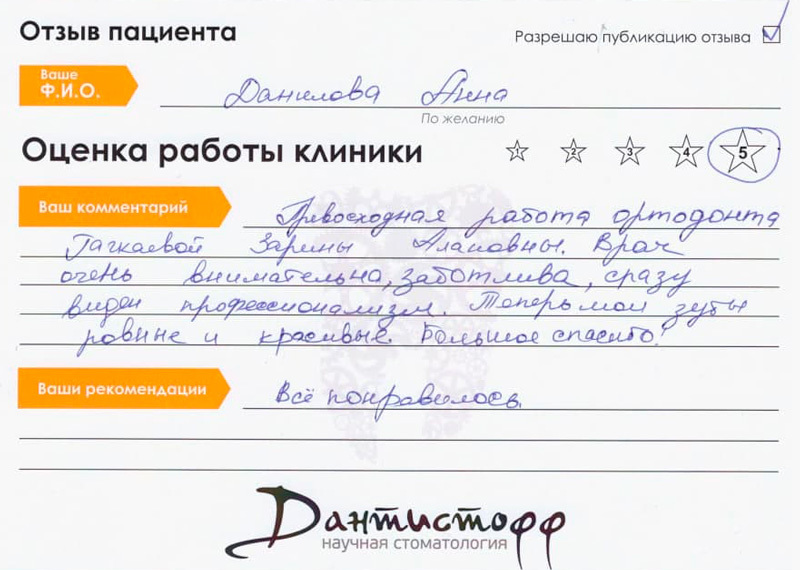 Отзыв пациента
Разрешаю публикацию отзыва
Ваше Ф.И.О.
Данилова Анна
По желанию
Оценка работы клиники 1 2 3 4 5
Ваш комментарий
Превосходная работа ортодонта
Гагкаевой Зарины Алановны. Врач
очень внимательна, заботлива, сразу
виден профессионализм. Теперь мои зубы
ровные и красивые. Большое спасибо!
Ваши рекомендации
Всё понравилось.
Дантистофф
научная стоматология